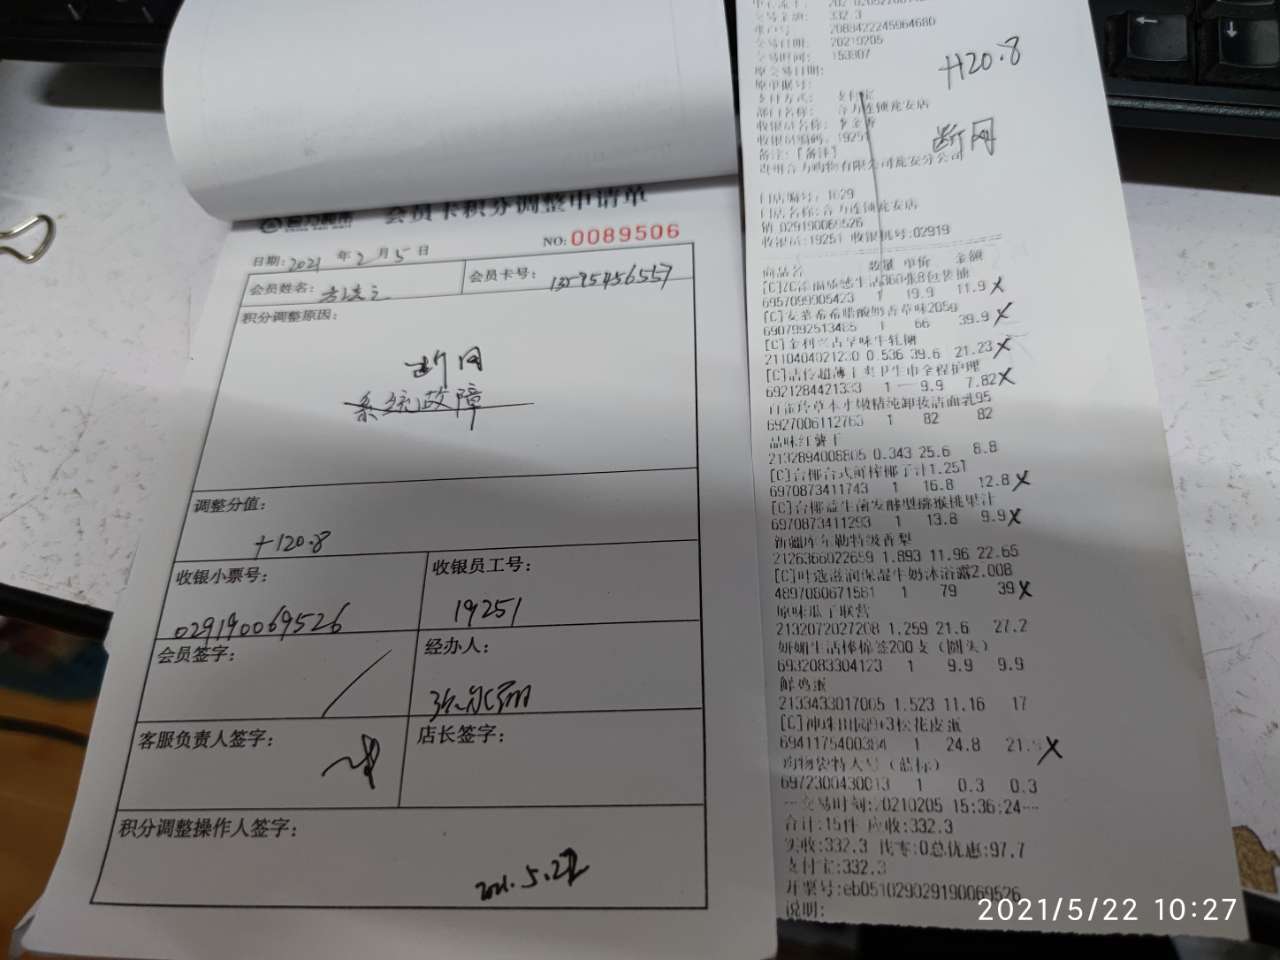 会员卡积分调整申请单
NO: 0089506
日期: 2021 年 2 月 5 日
会员姓名:
会员卡号: 13595456557
积分调整原因:
断网
系统故障
调整分值:
+120.8
收银小票号:
029190069526
收银员工号:
19251
会员签字:
经办人:
客服负责人签字:
店长签字:
积分调整操作人签字:
2021.5.22
交易金额: 332.3
2088422245964680
交易日期: 20210205
交易时间: 153907
原交易日期:
原单据号:
支付方式: 支付宝
部门名称: 合力连锁龙安店
收银员名称:
收银员编码: 19251
备注: [备注]
贵州合力购物有限公司龙安分公司
+120.8
断网
门店编号: 1029
门店名称: 合力连锁龙安店
销 029190069526
收银员: 19251 收银机号: 02919
商品名 数量 单价 金额
6957099905423 1 19.9 11.9 X
6907992513485 1 66 39.9 X
2110404021230 0.536 39.6 21.23 X
6921284421333 1 9.9 7.82 X
6927006112763 1 82 82
品味红薯干
2132894008805 0.343 25.6 8.8
[C]台椰台式鲜榨椰子汁1.25l
6970873411743 1 16.8 12.8 X
[C]台椰益生菌发酵型猕猴桃果汁
6970873411293 1 13.8 9.9 X
新疆库尔勒特级香梨
2126366022659 1.893 11.96 22.65
4897080671561 1 79 39 X
原味瓜子联营
2132072027208 1.259 21.6 27.2
妍媚生活棒棉签200支(圆头)
6932083304123 1 9.9 9.9
鲜鸡蛋
2133433017005 1.523 11.16 17
[C]神珠田园9+3松花皮蛋
6941175400384 1 24.8 X
购物袋特大号(蓝标)
6972300430013 1 0.3 0.3
交易时刻: 20210205 15:36:24
合计: 15件 应收: 332.3
实收: 332.3 找零: 0 总优惠: 97.7
支付宝: 332.3
开票号: eb051029029190069526
说明:
2021/5/22 10:27